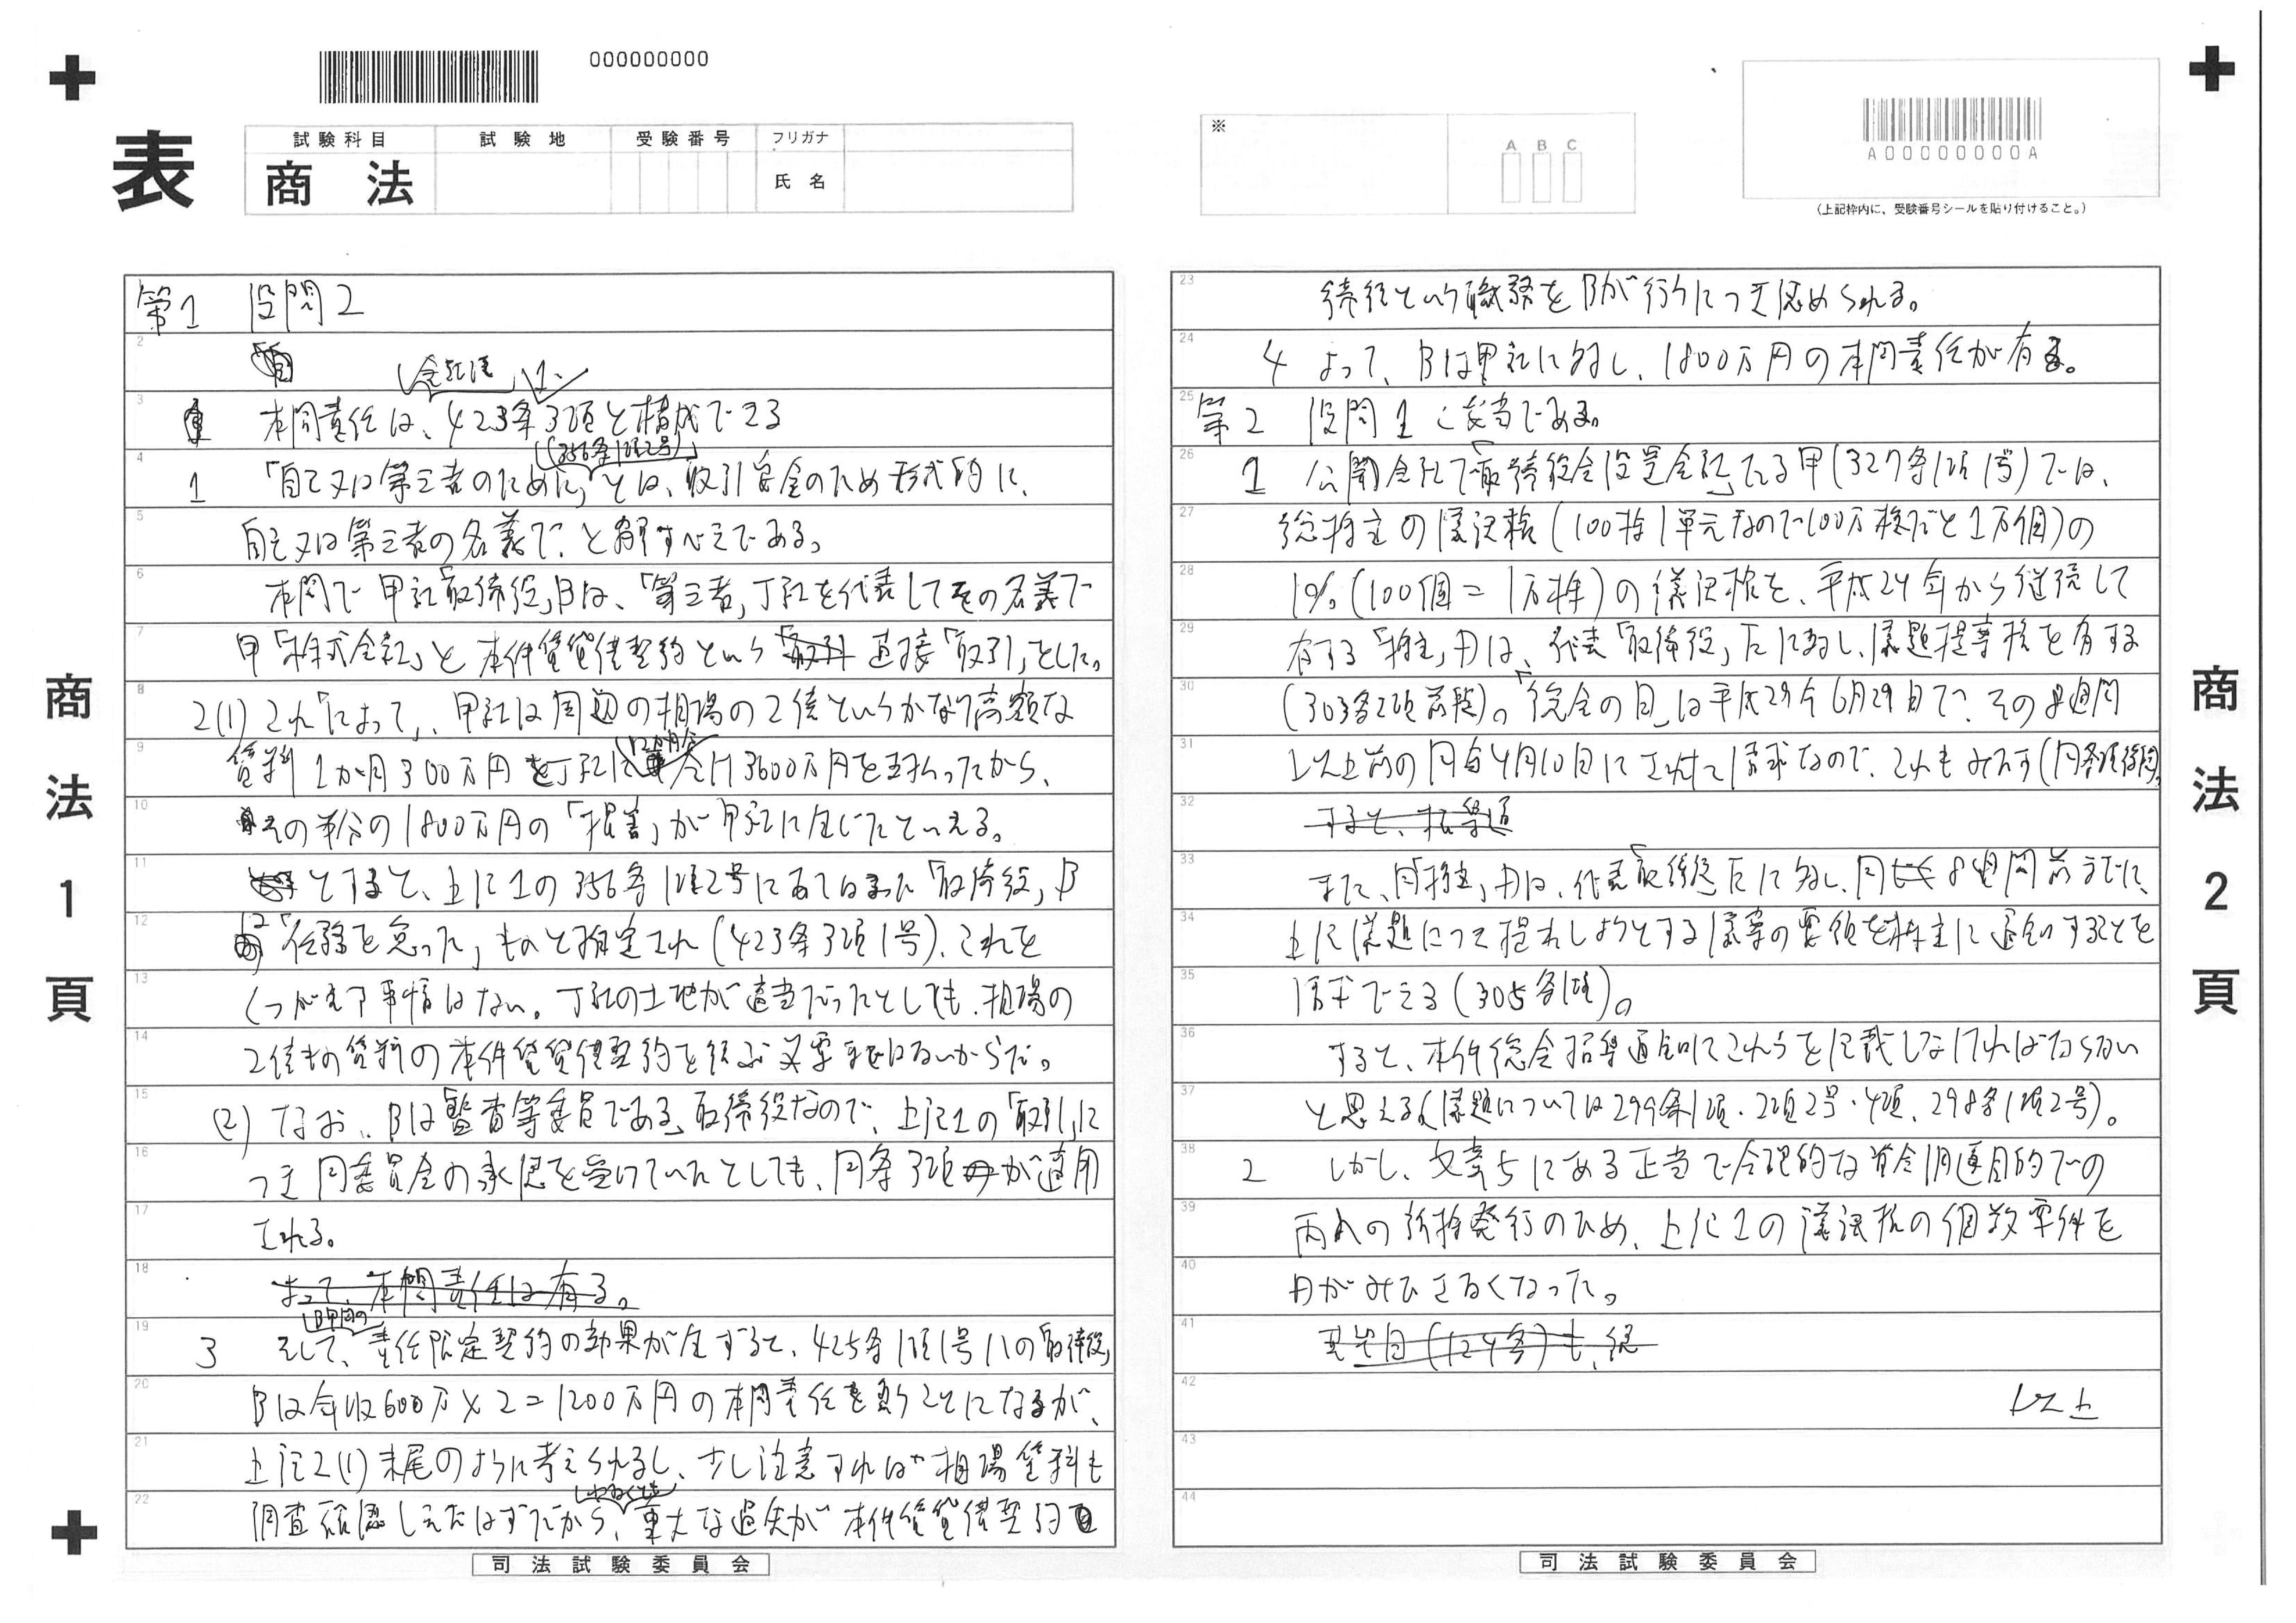 000000000
表
試験科目
試験地
受験番号
フリガナ
氏名
商法
※
A B C
A00000000A
(上記枠内に、受験番号シールを貼り付けること。)
商法1頁
第1 設問2
会社法 1、
本問責任は、423条3項と構成できる
(356条1項2号)
1 「自己又は第三者のために」とは、取引安全のため形式的に、
自己又は第三者の名義で、と解すべきである。
本問で甲社「取締役」Bは、「第三者」丁社を代表してその名義で
甲「株式会社」と本件賃貸借契約という直接「取引」をした。
2(1) これ「によって」、甲社は周辺の相場の2倍というかなり高額な
12か月分
賃料1か月300万円を丁社に合計3600万円を支払ったから、
その半分の1800万円の「損害」が甲社に生じたといえる。
とすると、上記1の356条1項2号にあてはまった「取締役」B
は「任務を怠った」ものと推定され(423条3項1号)、これを
くつがえす事情はない。丁社の土地が適当だったとしても、相場の
2倍もの賃料の本件賃貸借契約を結ぶ必要まではないからだ。
(2) なお、Bは「監査等委員である」取締役なので、上記1の「取引」に
つき同委員会の承認を受けていたとしても、同条3項が適用
される。
よって、本問責任は有る。
B甲間の
3 そして、責任限定契約の効果が生ずると、425条1項1号ハの「取締役」
Bは年収600万×2=1200万円の本問責任を負うことになるが、
上記2(1)末尾のように考えられるし、少し注意すれば相場賃料も
少なくとも
調査確認しえたはずだから、重大な過失が本件賃貸借契約
司法試験委員会
商法2頁
締結という職務をBが行うにつき認められる。
4 よって、Bは甲社に対し、1800万円の本問責任が有る。
第2 設問1 は妥当である。
1 公開会社で「取締役会設置会社」たる甲(327条1項1号)では、
総株主の議決権(100株1単元なので100万株だと1万個)の
1%(100個=1万株)の議決権を、平成24年から継続して
有する「株主」Dは、代表「取締役」Eに対し、議題提案権を有する
(303条2項前段)。「総会の日」は平成29年6月29日で、その8週間
以上前の同年4月10日にされた請求なので、これもみたす(同条項後段)。
すると、招集通
また、同「株主」Dは、代表「取締役」Eに対し、同じく8週間前までに、
上記議題につき提出しようとする議案の要領を株主に通知することを
請求できる(305条1項)。
すると、本件総会招集通知にこれらを記載しなければならない
と思える(議題については299条1項・2項2号・4項、298条1項2号)。
2 しかし、文章5にある正当で合理的な資金調達目的での
丙への新株発行のため、上記1の議決権の個数要件を
Dがみたさなくなった。
基準日(124条)も、経
以上
司法試験委員会